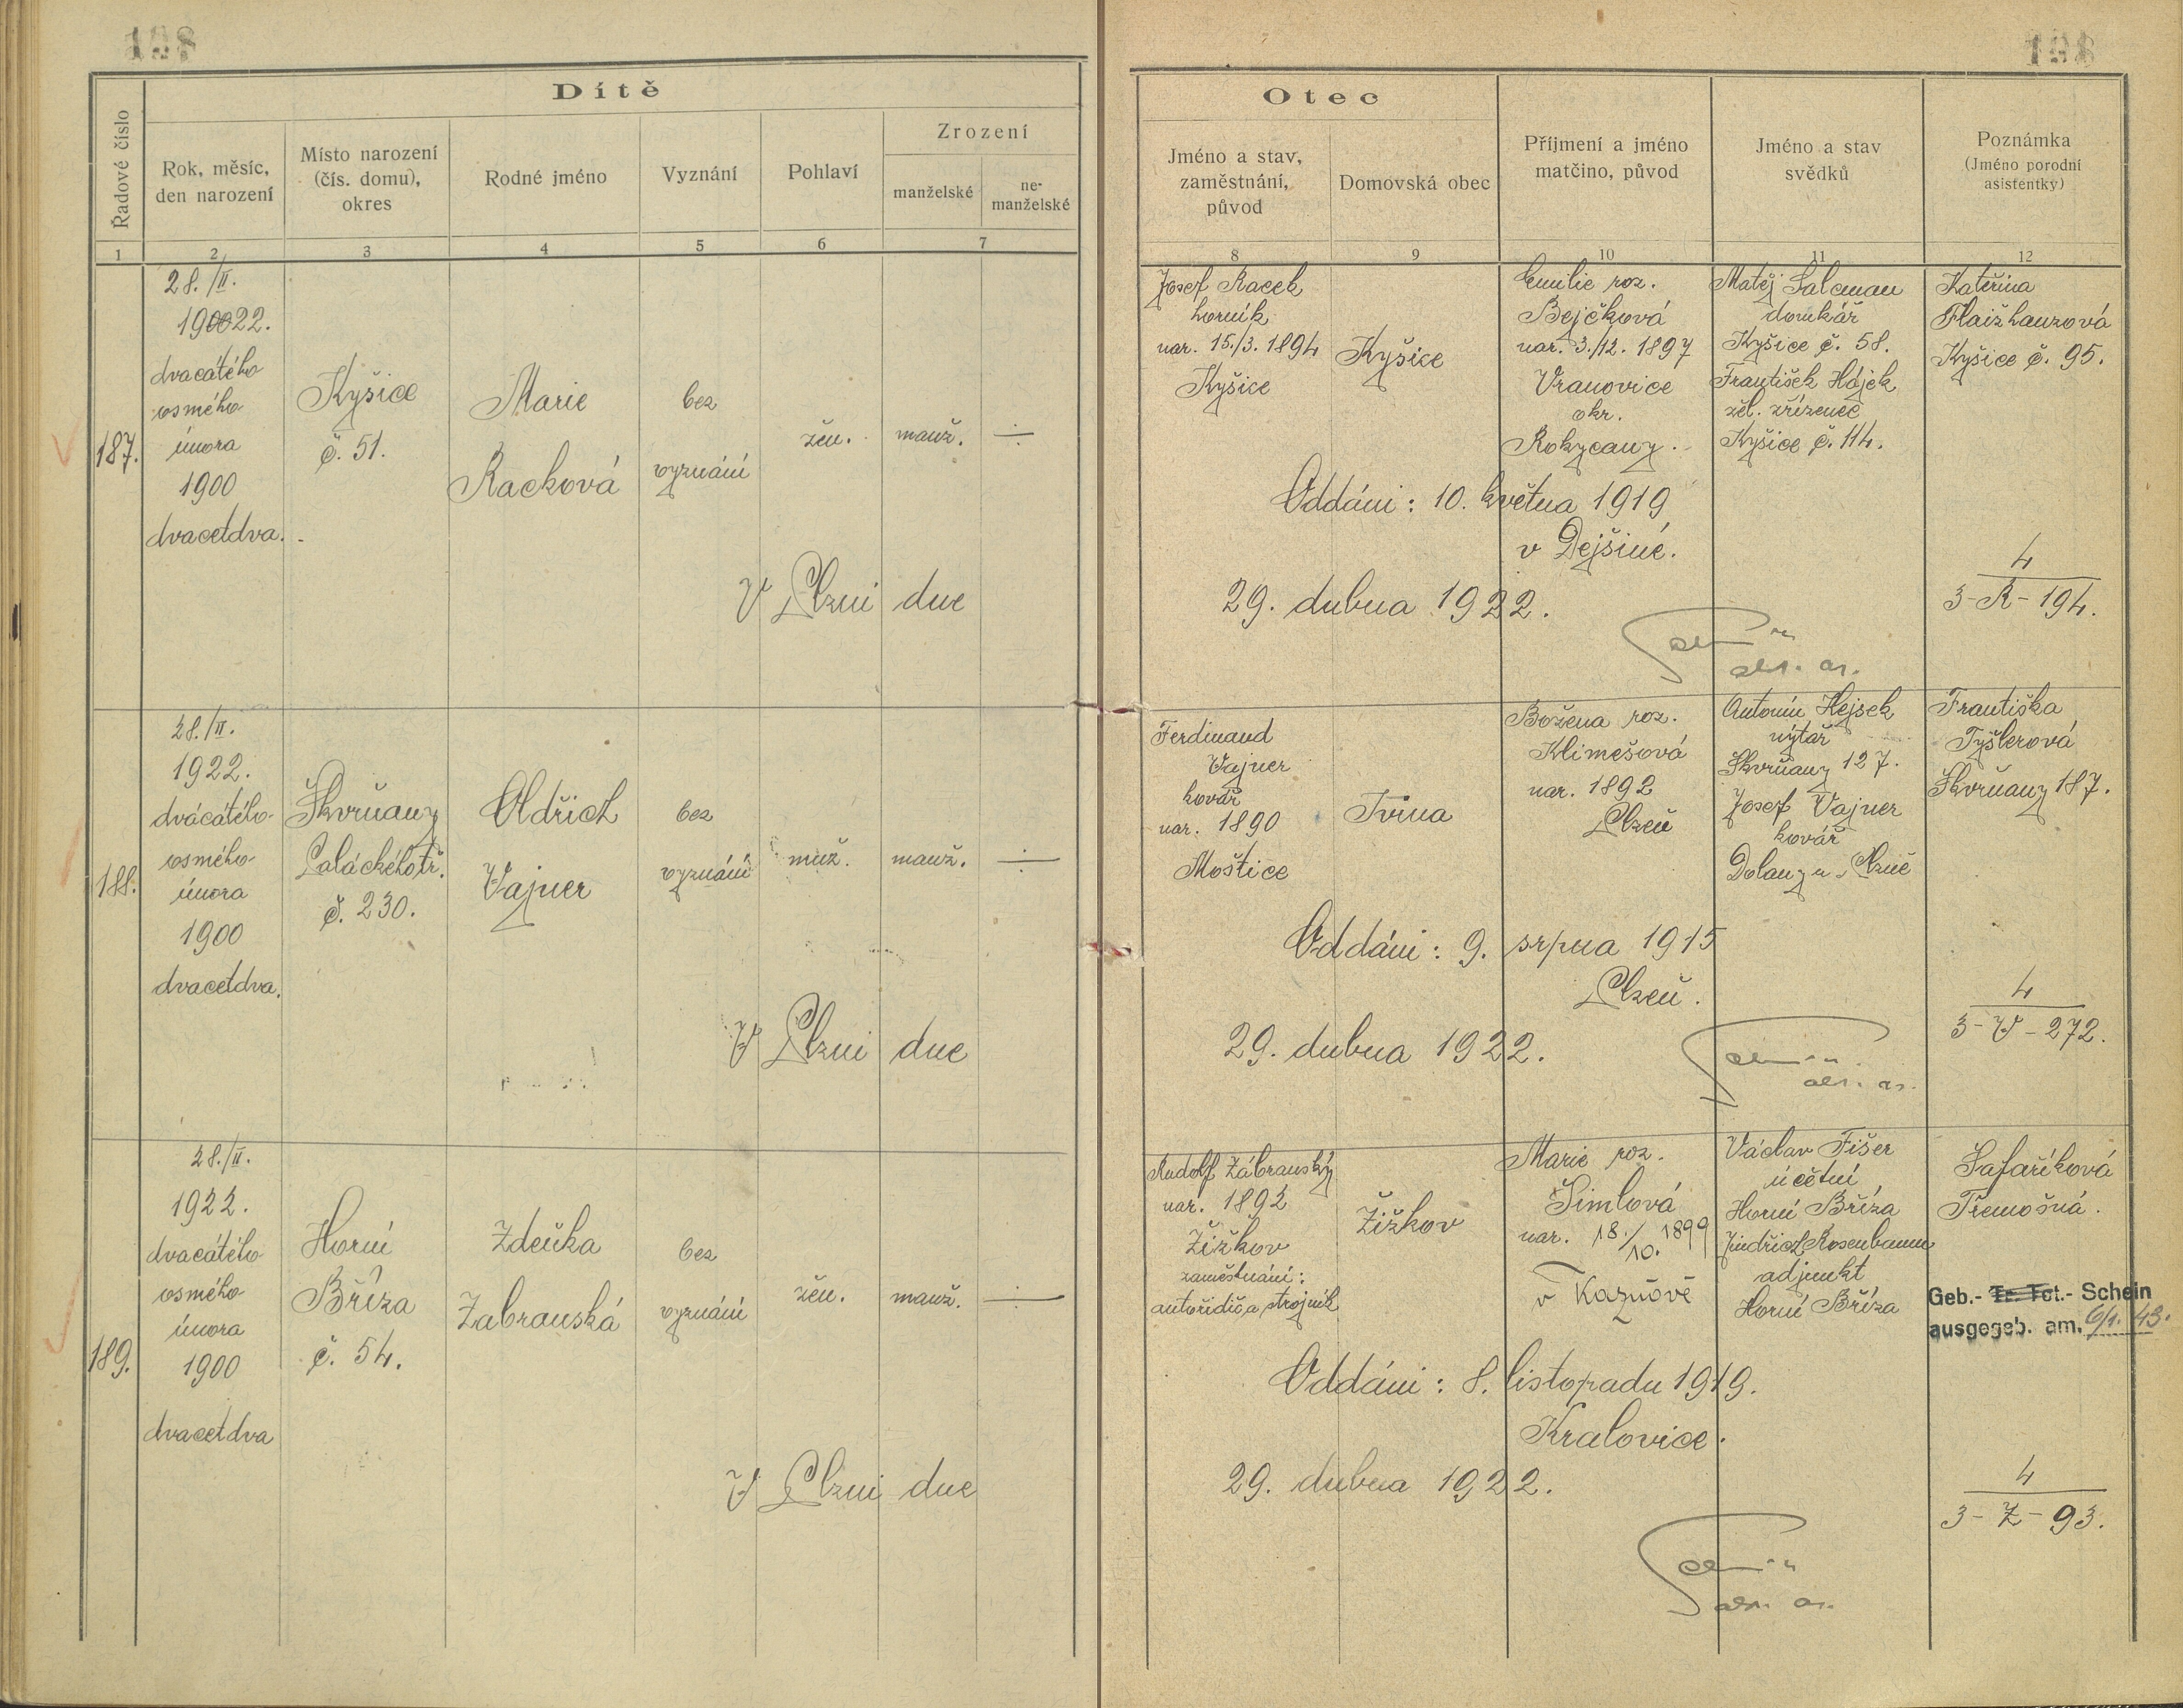 Dítě
Řadové číslo
Rok, měsíc,
den narození
Místo narození
(čís. domu),
okres
Rodné jméno
Vyznání
Pohlaví
Zrození
manželské
ne-
manželské
1 2 3 4 5 6 7
187.
28./II.
1922.
dvacátého
osmého
února
1900
dvacetdva.
Kyšice
č. 51.
Marie
Racková
bez
vyznání
žen.
manž.
÷
V Plzni dne
188.
28./II.
1922.
dvacátého
osmého
února
1900
dvacetdva.
Škvrňany
Palackého tř.
č. 230.
Oldřich
Vajner
bez
vyznání
muž.
manž.
÷
V Plzni dne
189.
28./II.
1922.
dvacátého
osmého
února
1900
dvacetdva
Horní
Bříza
č. 54.
Zdeňka
Zabranská
bez
vyznání
žen.
manž.
÷
V Plzni dne
Otec
Jméno a stav,
zaměstnání,
původ
Domovská obec
Příjmení a jméno
matčino, původ
Jméno a stav
svědků
Poznámka
(Jméno porodní
asistentky)
8 9 10 11 12
Josef Racek
horník
nar. 15./3. 1894
Kyšice
Kyšice
Emilie roz.
Bejčková
nar. 3./12. 1897
Vranovice
okr.
Rokycany.
Matěj Salcman
domkář
Kyšice č. 58.
František Hájek
žel. zřízenec
Kyšice č. 114.
Kateřina
Flaizhanzová
Kyšice č. 95.
Oddáni: 10. května 1919
v Dejšině.
29. dubna 1922.
4
3-R-194.
Ferdinand
Vajner
kovář
nar. 1890
Moštice
Božena roz.
Klimešová
nar. 1892
Plzeň
Antonín Hejsek
nýtař
Škvrňany 127.
Josef Vajner
kovář
Dolany u Plzně
Františka
Tyšlerová
Škvrňany 187.
Oddáni: 9. srpna 1915
Plzeň.
29. dubna 1922.
4
3-V-272.
Rudolf Zábranský
nar. 1892
Žižkov
zaměstnání:
autořidič a strojník
Žižkov
Marie roz.
Šimlová
nar. 18./10. 1899
v Kaznově
Václav Fišer
účetní
Horní Bříza
Jindřich Rosenbaum
adjunkt
Horní Bříza
Šafaříková
Třemošná.
Geb.- Tr. Tot.- Schein
ausgegeb. am. 6/1. 43.
Oddáni: 8. listopadu 1919.
Kralovice.
29. dubna 1922.
4
3-Z-93.